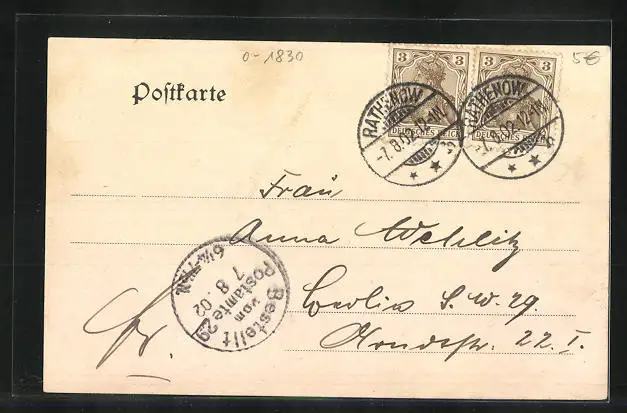 o-1830
5€
Postkarte
3 3
3 3
DEUTSCHES REICH
DEUTSCHES REICH
RATHENOW
-7.8.02.12-1N.
RATHENOW
-7.8.02.12-1N.
Frau
Anna
Berlin S.W. 29.
22. I.
Bestellt
vom
Postamte 29
7 8. 02
Fr.